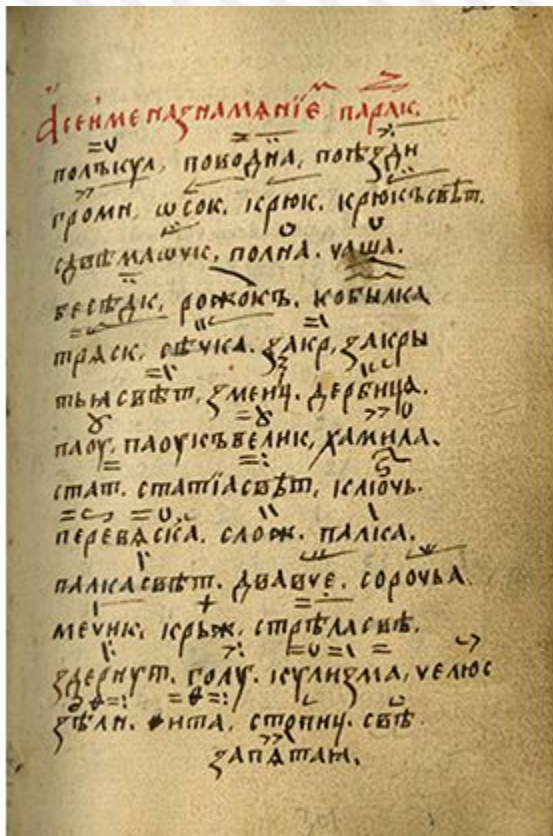 А се имена знамѧнїе, парак.
полъкул, поводна, поѣзди
громн, ѡсок. крюк. крюкъ свѣт.
сдвѣмаѡчк, полна. чаша.
бесѣдк, рожокъ. кобылка
трѧск, свѣчка. закр, закры
тыѧ свѣт, змеиц. дербица.
паоу, паоукъ велик, хамила.
стат. статїа свѣт, ключь.
перевѧска. слож. палка.
палка свѣт. два вче. сорочьа.
мечик, крыж, стрѣла свѣ.
здернут. голу. кулизма, челюс
зѣлн. фита, стопиц. свѣ
запѧтаѧ.